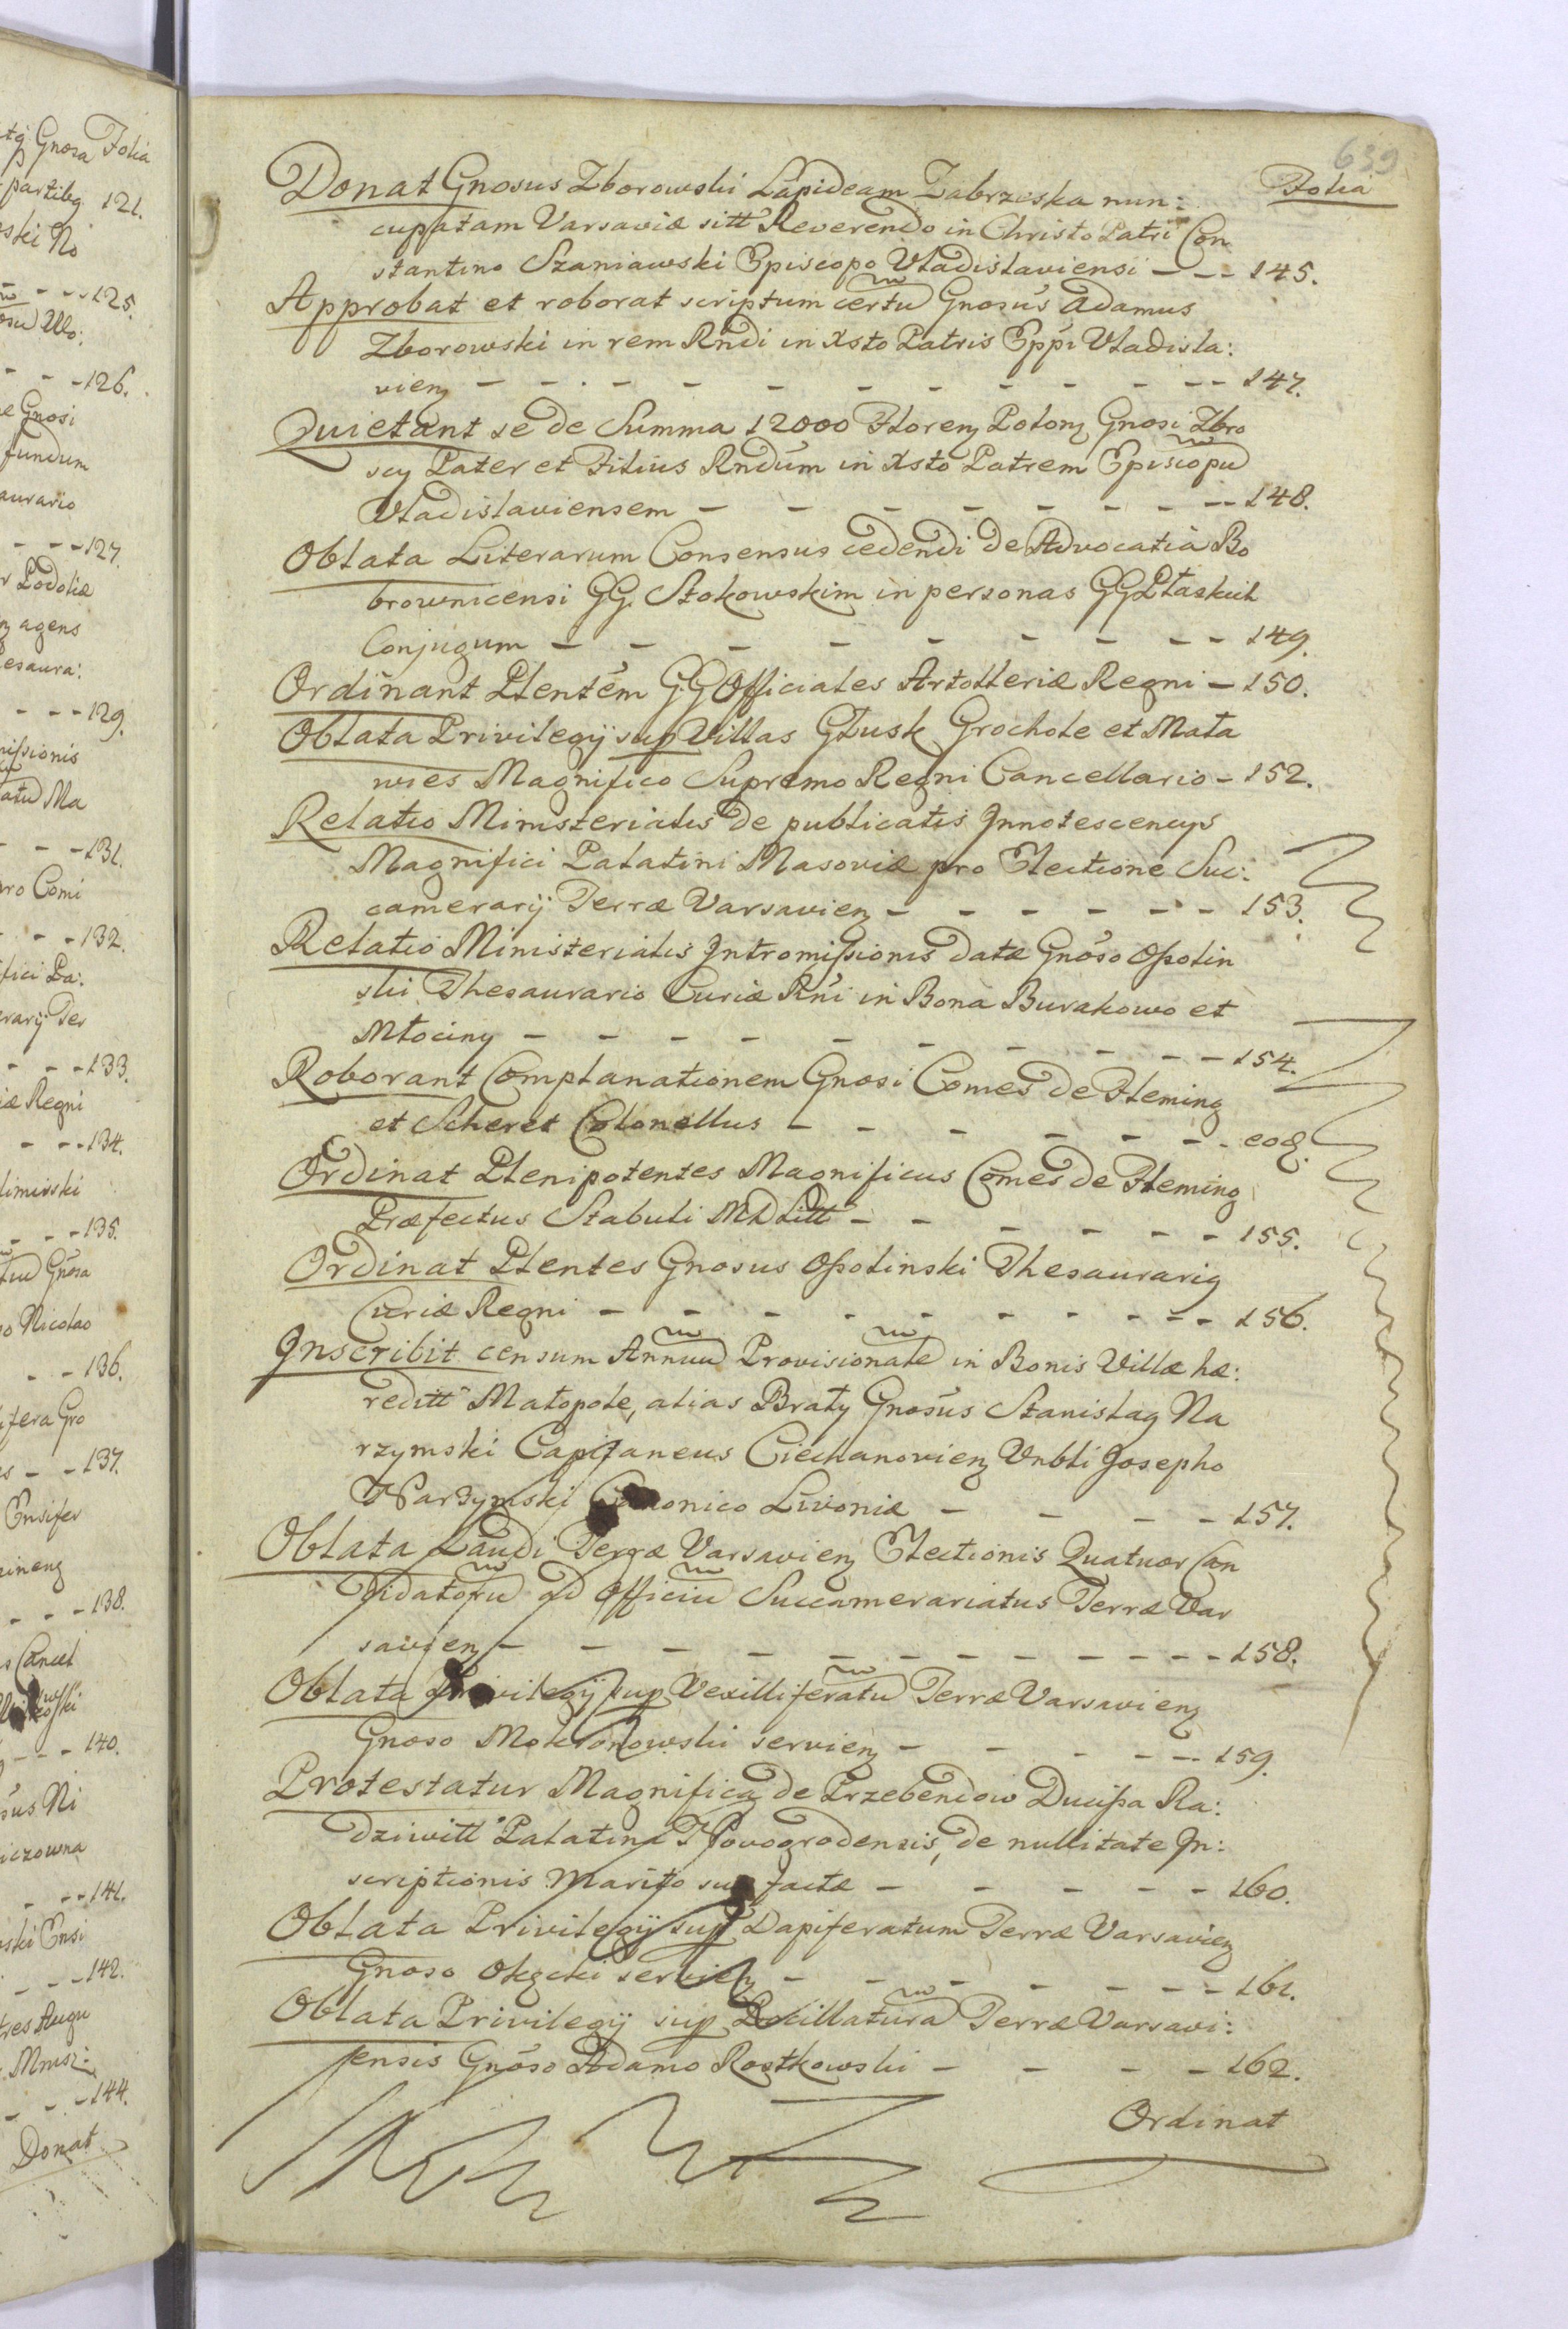 639
Folia
Donat Gnosus Zborowski Lapideam Zabrzeska nun:
cupatam Varsaviæ sitt Reverendo in Christo Patri Con
stantino Szaniawski Episcopo Vladislaviensi - - - 145.
Approbat et roborat scriptum certu Gnosus Adamus
Zborowski in rem Rndi in Xsto Patris Eppi Vladisla:
vien - - - - - - - - - - - 147.
Quietant se de Summa 12000 Floren Polon Gnosi Zbro
scy Pater et Filius Rndum in Xsto Patrem Episcopu
Vladislaviensem - - - - - - - - 148.
Oblata Literarum Consensus cedendi de Advocatia Bo
brownicensi GG. Stokowskim in personas GG Płaskich
Conjugum - - - - - - - - - 149.
Ordinant Plentem GG Officiales Artolleriæ Regni - 150.
Oblata Privilegij sup Villas Głusk Grochole et Mała
wies Magnifico Supremo Regni Cancellario - 152.
Relatio Ministerialis de publicatis Innotescencys
Magnifici Palatini Masoviæ pro Electione Suc:
camerarij Terræ Varsavien - - - - - - 153.
Relatio Ministerialis Intromissionis datæ Gnoso Ossolin
ski Thesaurario Curiæ Rni in Bona Burakowo et
Młociny - - - - - - - - - - 154.
Roborant Complanationem Gnosi Comes de Fleming
et Scheret Colonellus - - - - - - - eod.
Ordinat Plenipotentes Magnificus Comes de Fleming
Præfectus Stabuli MD Litt - - - - - - 155.
Ordinat Plentes Gnosus Ossolinski Thesaurarig
Curiæ Regni - - - - - - - - - 156.
Inscribit censum Annuu Provisionale in Bonis Villæ hæ:
reditt Małopole, alias Braty Gnosus Stanislag Na
rzymski Capitaneus Ciechanovien Vnbli Josepho
Narzymski Canonico Livoniæ - - - - 157.
Oblata Laudi Terræ Varsavien Electionis Quatuor Can
didatoru ad Officiu Succamerariatus Terræ Var
savien - - - - - - - - - - 158.
Oblata Privilegij sup Vexilliferatu Terræ Varsavien
Gnoso Mokronowski servien - - - - - 159.
Protestatur Magnifica de Przebendow Ducissa Ra:
dziwill Palatina Novogrodensis, de nullitate In:
scriptionis Marito suo factæ - - - - - 160.
Oblata Privilegij sup Dapiferatum Terræ Varsavien
Gnoso Okęcki servien - - - - - - - 161.
Oblata Privilegij sup Pocillatura Terræ Varsavi:
ensis Gnoso Adamo Rostkowski - - - - 162.
Ordinat